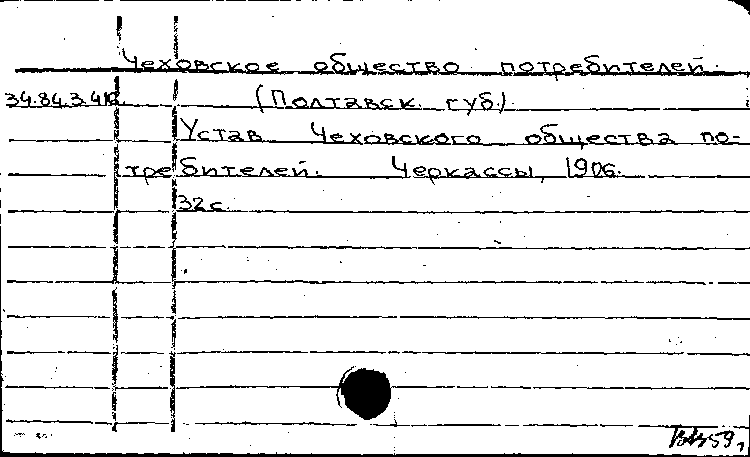 Чеховское общество потребителей.
34.84.3.410. (Полтавск. губ.)
Устав Чеховского общества по-
требителей. Черкассы, 1906.
32 с.